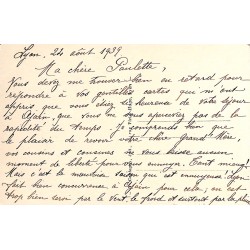 Lyon, 24 août 1939
Ma chère Paulette,
Vous devez me trouver bien en retard pour
répondre à vos gentilles cartes qui m'ont
appris que vous étiez heureuse de votre séjour
à Ajain, que vous ne vous aperceviez pas de la
rapidité du temps. Je comprends bien que
le plaisir de revoir votre chère Grand'Mère
vos cousins et cousines ne vous laisse aucun
moment de liberté pour vous ennuyer. Tant mieux!
Mais c'est la mauvaise saison qui est ennuyeuse; Lyon
fait bien concurrence à Ajain pour cela; on est
trop bien servi par le vent, le froid et surtout par la pluie